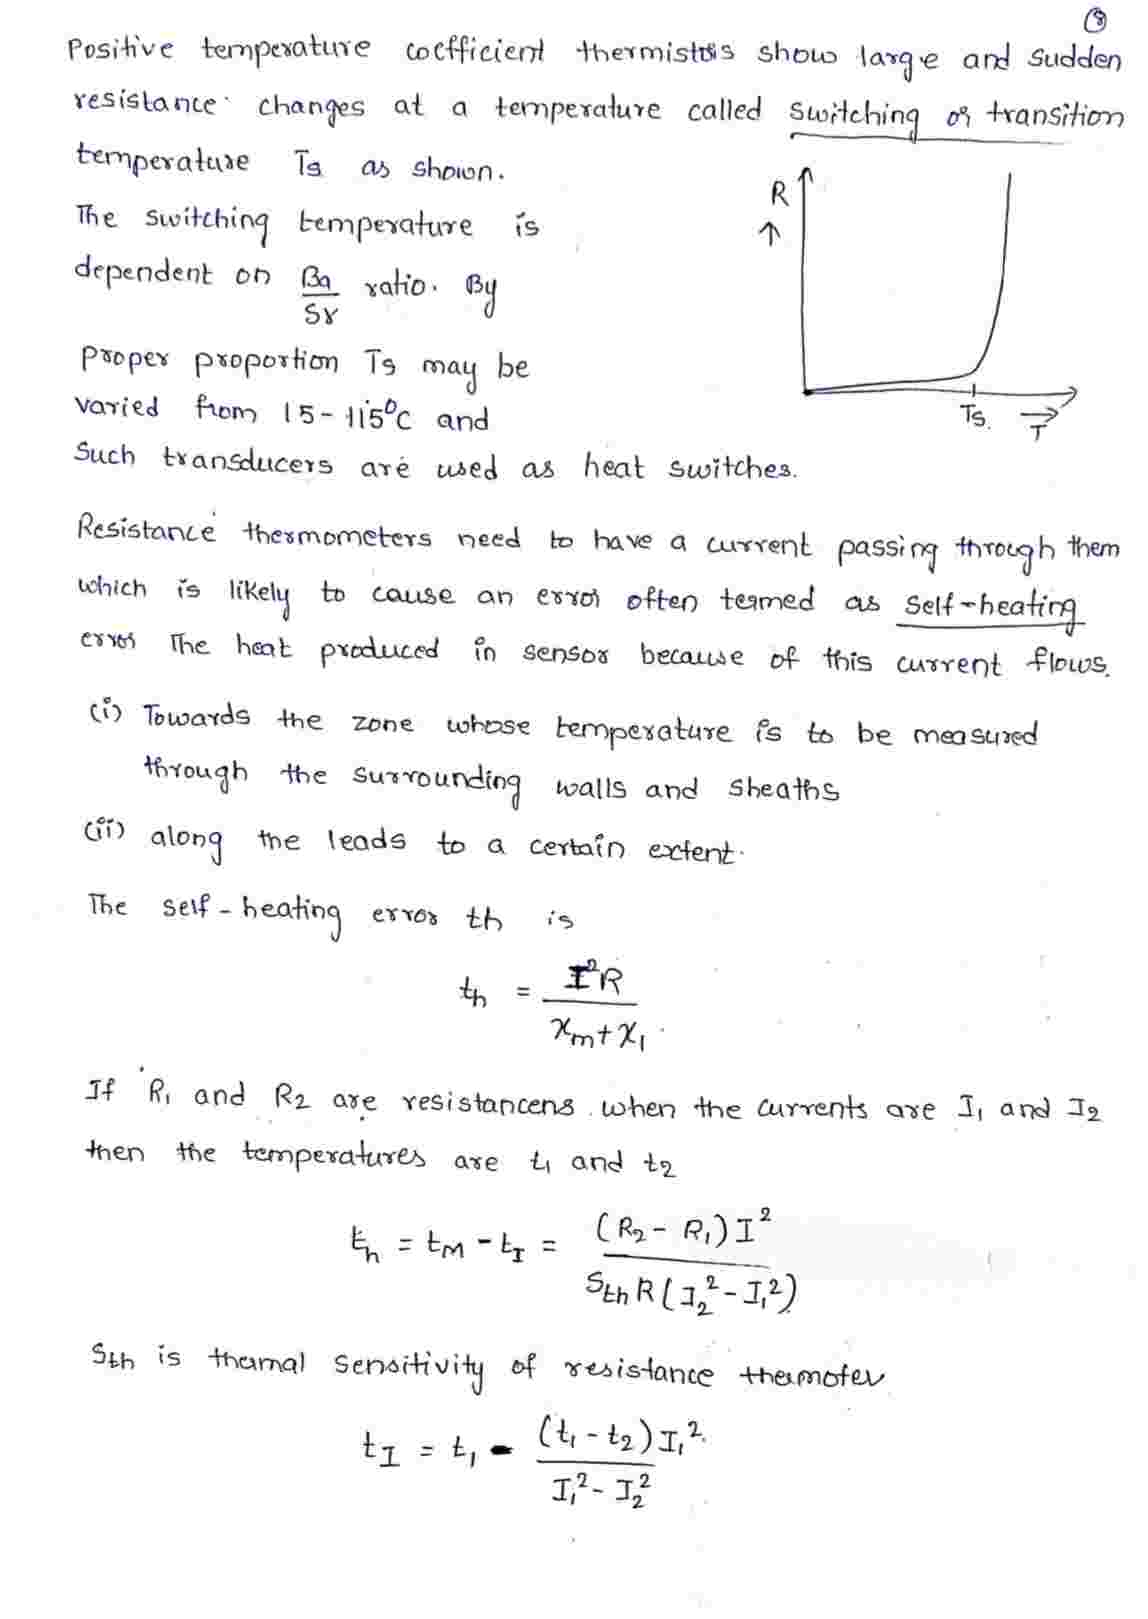 8
Positive temperature coefficient thermistors show large and sudden
resistance changes at a temperature called switching or transition
temperature Ts as shown.
The switching temperature is
dependent on Ba/Sr ratio. By
proper proportion Ts may be
varied from 15-115°C and
Such transducers are used as heat switches.
R
↑
Ts.
→
T
Resistance thermometers need to have a current passing through them
which is likely to cause an error often termed as self-heating
error The heat produced in sensor because of this current flows.
(i) Towards the zone whose temperature is to be measured
through the surrounding walls and sheaths
(ii) along the leads to a certain extent.
The self-heating error th is
th = I²R / (xm + x1)
If R1 and R2 are resistancens when the currents are I1 and I2
then the temperatures are t1 and t2
th = tM - tI = (R2 - R1) I² / Sth R (I2² - I1²)
Sth is thermal sensitivity of resistance thermoter
tI = t1 - (t1 - t2) I1² / I1² - I2²